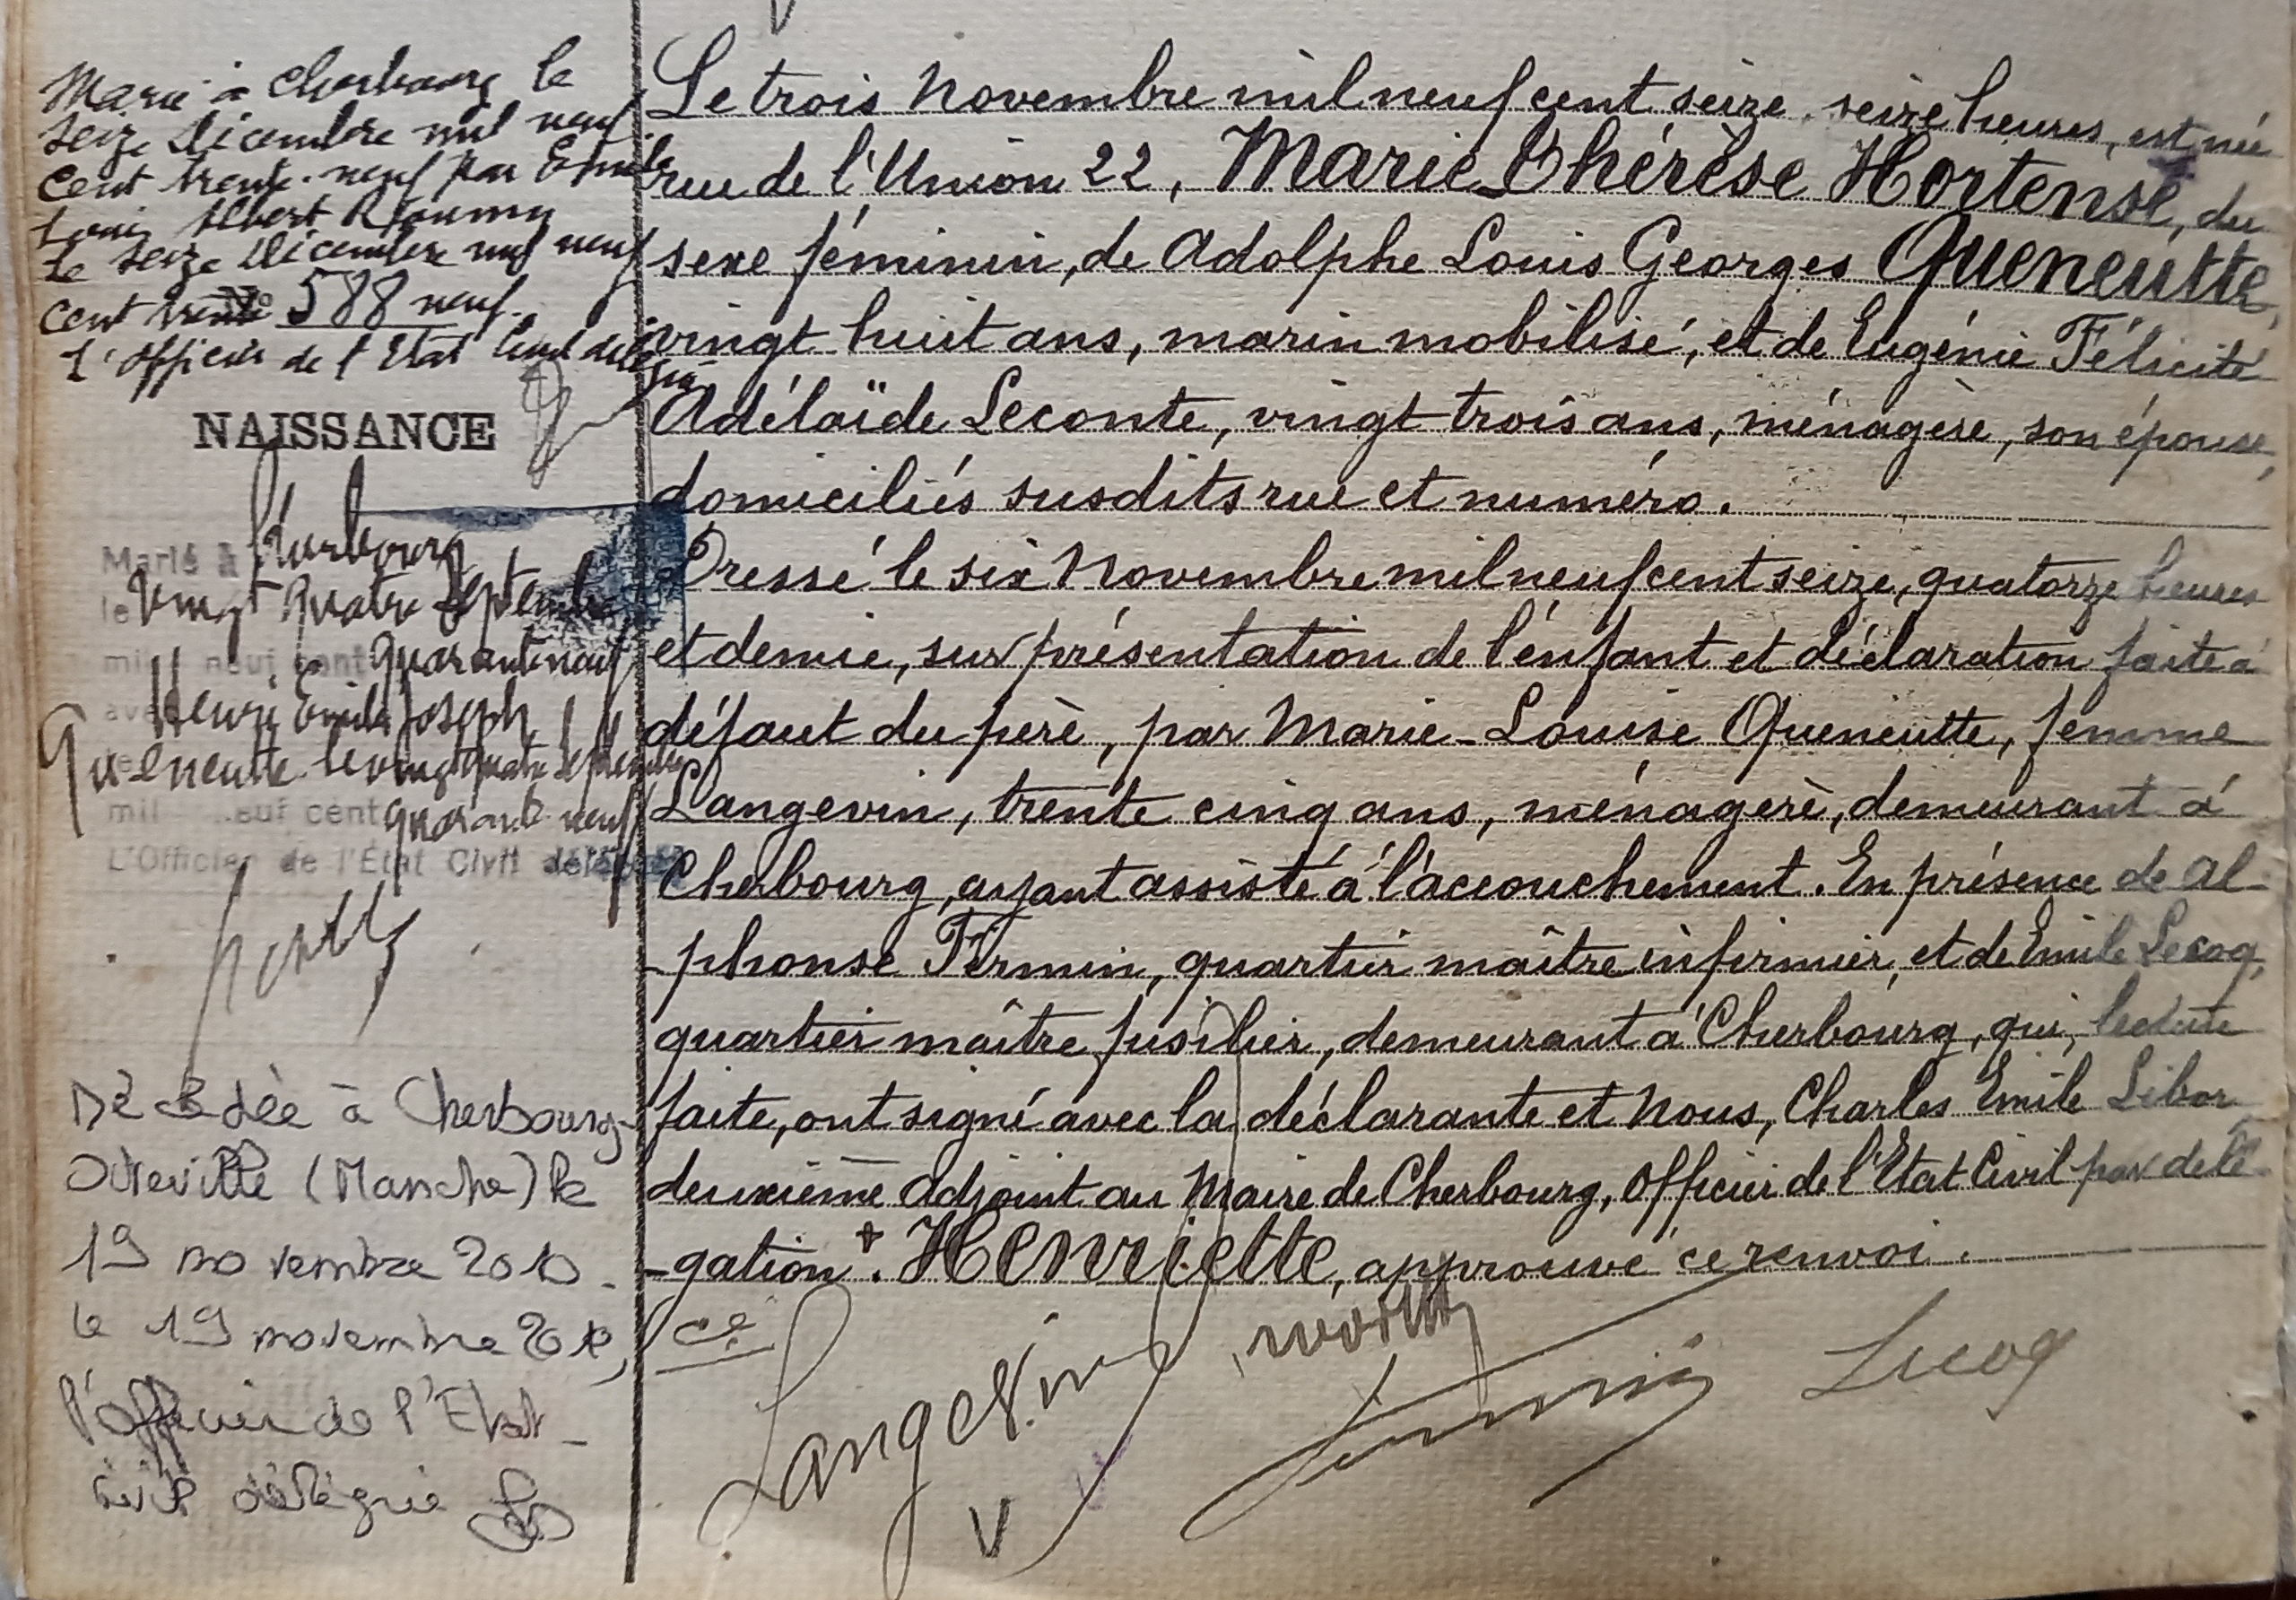 Marié à Cherbourg le
seize décembre mil neuf
cent trente-neuf par Emile
Louis Albert
le seize décembre mil neuf
cent trente neuf.
N° 588
L'officier de l'Etat Civil délégué
NAISSANCE
Marié à Cherbourg
le vingt quatre septembre
mil neuf cent quarante neuf
avec Henri Emile Joseph
Queneutte le vingt quatre septembre
mil neuf cent quarante neuf
L'Officier de l'État Civil délégué
Décédée à Cherbourg-
Octeville (Manche) le
19 novembre 2010.
le 19 novembre 2010,
l'officier de l'Etat-
civil délégué
Le trois Novembre mil neuf cent seize, seize heures, est née
rue de l'Union 22, Marie Thérèse Hortense, du
sexe féminin, de Adolphe Louis Georges Queneutte,
vingt huit ans, marin mobilisé, et de Eugénie Félicité
Adélaïde Leconte, vingt trois ans, ménagère, son épouse,
domiciliés susdits rue et numéro.
Dressé le six Novembre mil neuf cent seize, quatorze heures
et demie, sur présentation de l'enfant et déclaration faite à
défaut du père, par Marie-Louise Queneutte, femme
Langevin, trente cinq ans, ménagère, demeurant à
Cherbourg, ayant assisté à l'accouchement. En présence de Al-
-phonse Firmin, quartier maître infirmier, et de Emile Lecoq,
quartier maître fusilier, demeurant à Cherbourg, qui, lecture
faite, ont signé avec la déclarante et Nous, Charles Emile Libor
deuxième Adjoint au Maire de Cherbourg, Officier de l'Etat Civil par délé-
-gation + . Henriette, approuvé ce renvoi.
ce
Langevin
Firmin
Lecoq
V